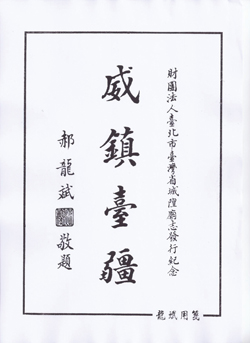 財團法人臺北市臺灣省城隍廟志發行紀念
威鎮臺疆
郝龍斌
敬題
龍斌用箋